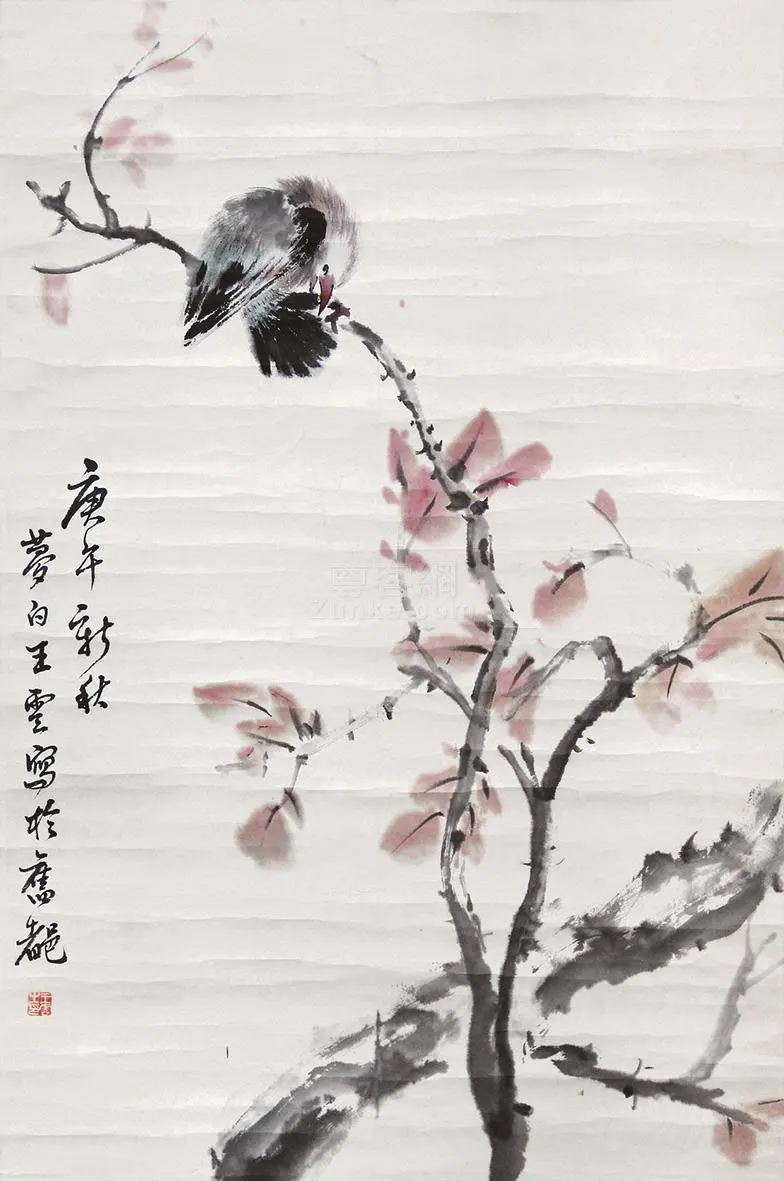 庚午新秋
夢白王雲寫於舊都
尊客網
Zunke.com